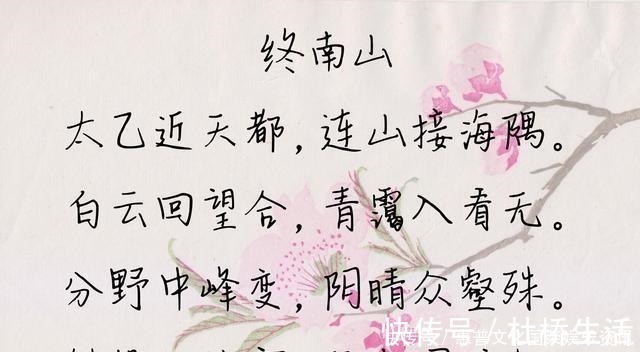 终南山
太乙近天都,连山接海隅。
白云回望合,青霭入看无。
分野中峰变,阴晴众壑殊。
快传号 / 杜桥生活